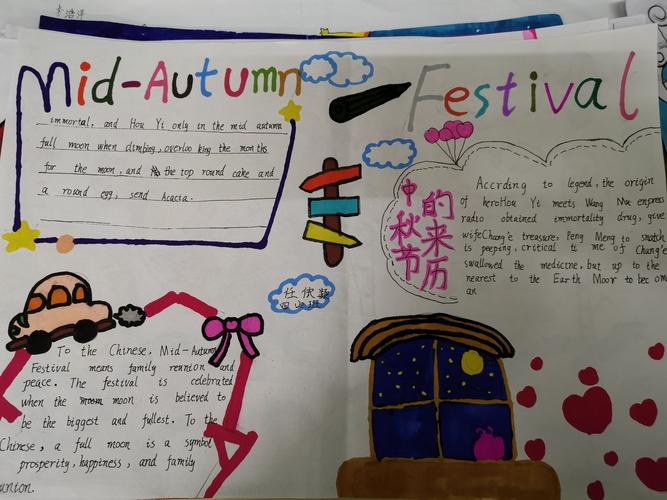 Mid-Autumn Festival
immortal, and Hou Yi only in the mid autumn
full moon when climbing, overloo king the months
for the moon, and the top round cake and
a round egg, send Acacia.
中秋节的来历
Accrding to legend, the origin
of heroHou Yi meets Wang Mu empress
radio obtained immortality drug, give
wifeChang'e treasure, Peng Meng to snatch
is peeping, critical ti me of Chang'e
swallowed the medicine, but up to the
nearest to the Earth Moor to bec om
an
四山班
To the Chinese, Mid-Autumn
Festival means family reunion and
peace. The festival is celebrated
when the moon is believed to
be the biggest and fullest. To the
Chinese, a full moon is a symbol
prosperity, happiness, and family
union.